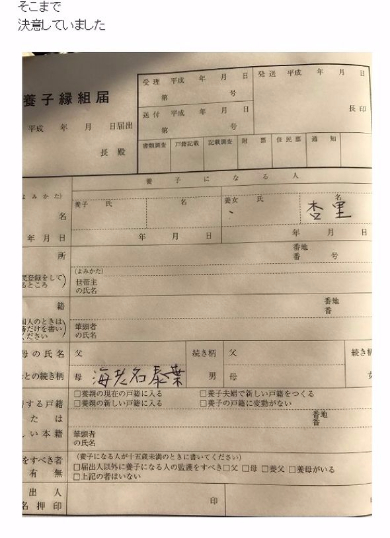 そこまで
決意していました
養子縁組届
受理 平成 年 月 日
発送 平成 年 月 日
第 号
送付 平成 年 月 日
長印
平成 年 月 日届出
第 号
長 殿
書類調査 戸籍記載 記載調査 附票 住民票 通知
養子になる人
よみかた）
名
養子 氏 名
養女 氏 名
杏里
年 月 日
年 月 日
年 月 日
所
番地
番 号
（よみかた）
世帯主
の氏名
登録をして
るところ
籍
番地
番
人のときは
だけを書い
ください
筆頭者
の氏名
母の氏名
父
続き柄
父
続き柄
との続き柄
母 海老名泰葉
男
母
□養親の現在の戸籍に入る
□養子夫婦で新しい戸籍をつくる
□養親の新しい戸籍に入る
□養子の戸籍に変動がない
する戸籍
たは
しい本籍
番地
番
筆頭者
の氏名
をすべき者
有無
（養子になる人が十五歳未満のときに書いてください）
□届出人以外に養子になる人の監護をすべき□父 □母 □養父 □養母がいる
□上記の者はいない
出人
名押印
印
印